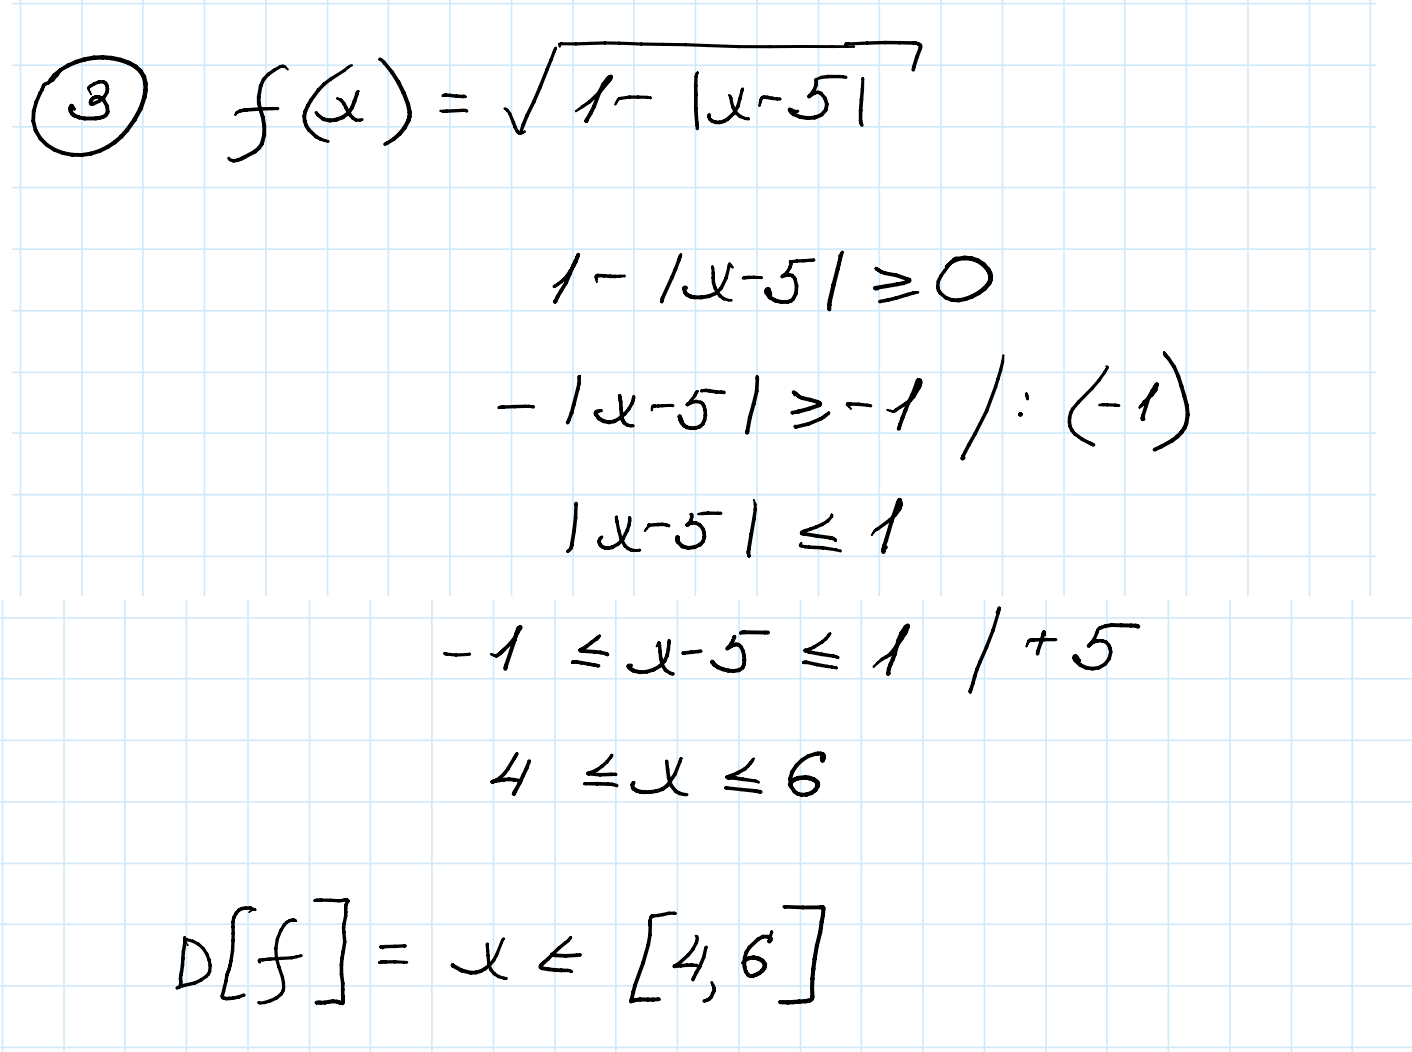 3 f(x) = √(1 - |x-5|)
1 - |x-5| ≥ 0
- |x-5| ≥ -1 / : (-1)
|x-5| ≤ 1
-1 ≤ x-5 ≤ 1 / + 5
4 ≤ x ≤ 6
D[f] = x ∈ [4,6]